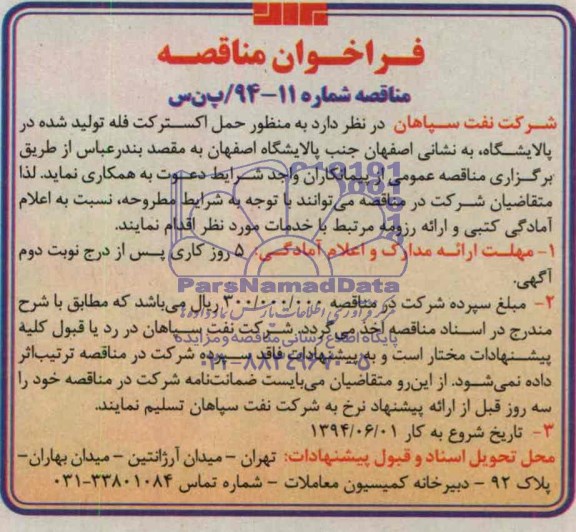 فراخوان مناقصه
مناقصه شماره ۱۱-۹۴/پ‌ن‌س
شرکت نفت سپاهان در نظر دارد به منظور حمل اکسترکت فله تولید شده در
پالایشگاه، به نشانی اصفهان جنب پالایشگاه اصفهان به مقصد بندرعباس از طریق
برگزاری مناقصه عمومی از پیمانکاران واجد شرایط دعوت به همکاری نماید. لذا
متقاضیان شرکت در مناقصه می‌توانند با توجه به شرایط مطروحه، نسبت به اعلام
آمادگی کتبی و ارائه رزومه مرتبط با خدمات مورد نظر اقدام نمایند.
۱- مهلت ارائه مدارک و اعلام آمادگی: ۵ روز کاری پس از درج نوبت دوم
آگهی.
ParsNamadData
۲- مبلغ سپرده شرکت در مناقصه ۳۰۰/۰۰۰/۰۰۰ ریال می‌باشد که مطابق با شرح
مندرج در اسناد مناقصه اخذ می‌گردد. شرکت نفت سپاهان در رد یا قبول کلیه
پایگاه اطلاع رسانی مناقصه و مزایده
پیشنهادات مختار است و به پیشنهادات فاقد سپرده شرکت در مناقصه ترتیب‌اثر
۰۲۱-۸۸۳۴۹۶۷۰-۵
داده نمی‌شود. از این‌رو متقاضیان می‌بایست ضمانت‌نامه شرکت در مناقصه خود را
سه روز قبل از ارائه پیشنهاد نرخ به شرکت نفت سپاهان تسلیم نمایند.
۳- تاریخ شروع به کار ۱۳۹۴/۰۶/۰۱
محل تحویل اسناد و قبول پیشنهادات: تهران - میدان آرژانتین - میدان بهاران-
پلاک ۹۲ - دبیرخانه کمیسیون معاملات - شماره تماس ۳۳۸۰۱۰۸۴-۰۳۱